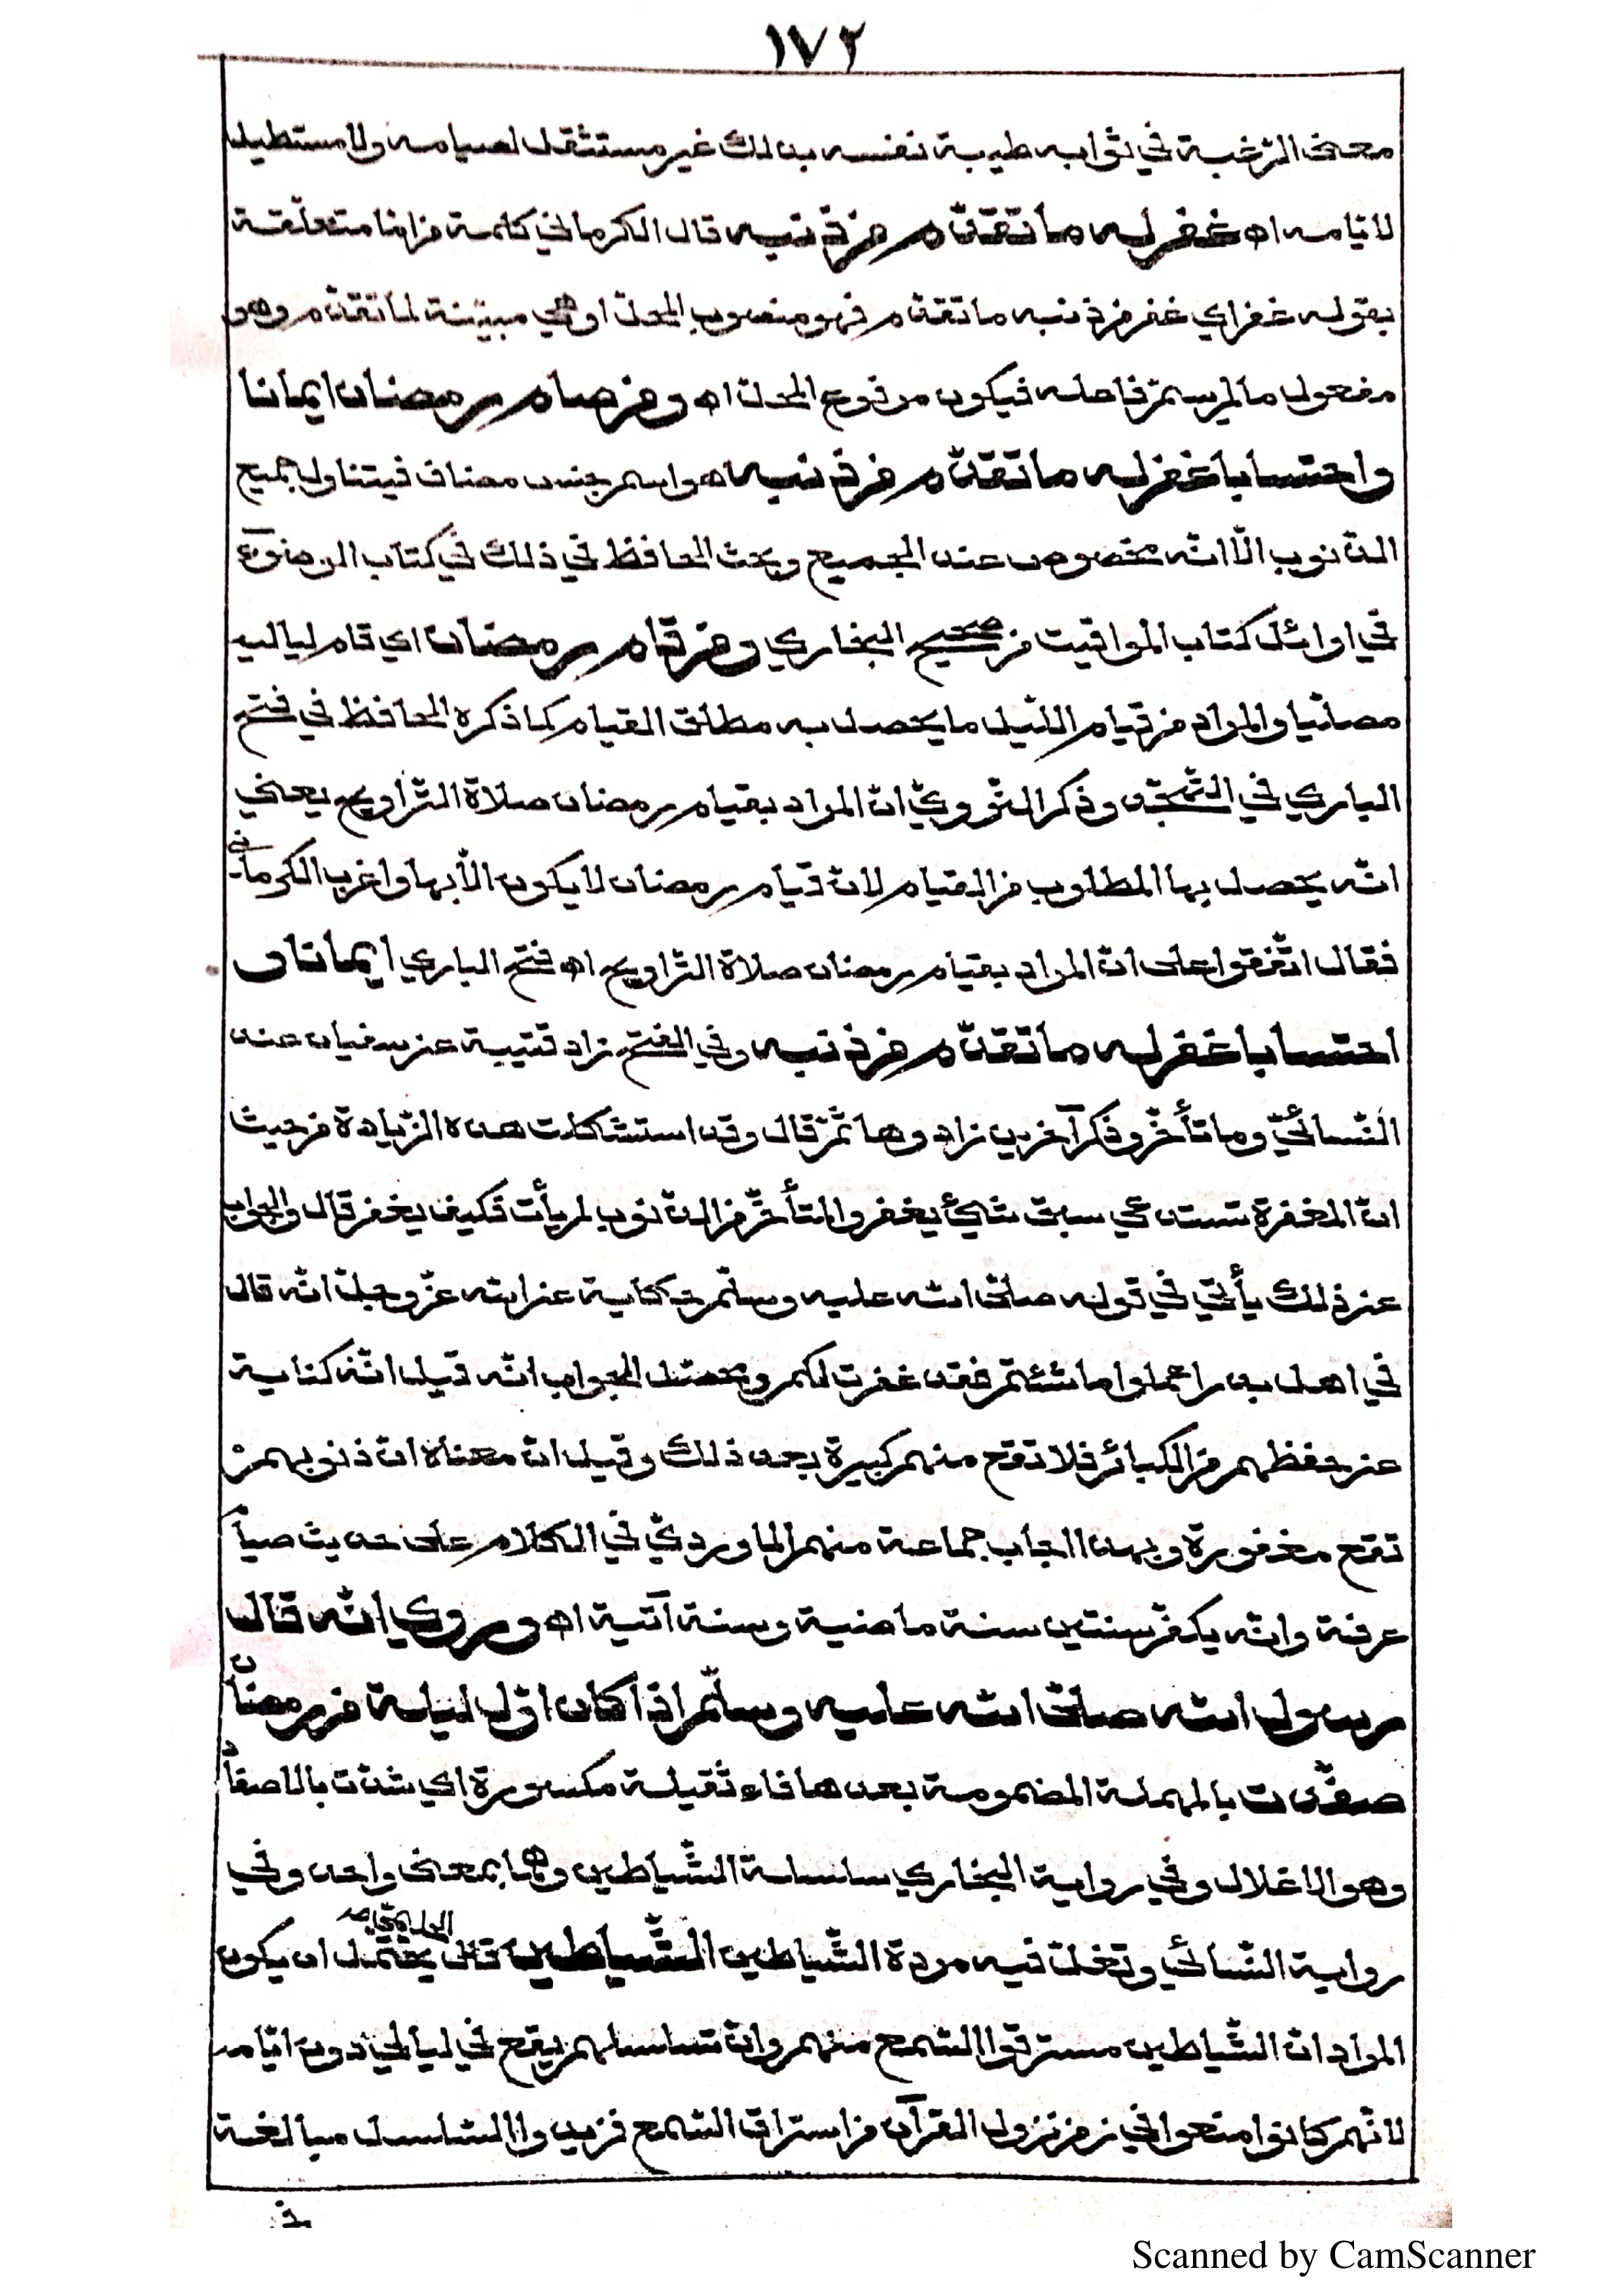 ١٧٢
معنى الرّغبة في ثوابه طيبة نفسه بذلك غير مستثقل لصيامه ولا مستطيل
لايّامه اه غفر له ما تقدّم من ذنبه قال الكرماني كلمة من امّا متعلّقة
بقوله غفر اي غفر من ذنبه ما تقدّم فهو منصوب المحلّ او هي مبيّنة لما تقدّم وهو
مفعول ما لم يسمّ فاعله فيكون مرفوع المحلّ اه ومن صام رمضان ايمانا
واحتسابا غفر له ما تقدّم من ذنبه هو اسم جنس مضاف فيتناول جميع
الذّنوب الّا انّه مخصوص عند الجميع وبحث الحافظ في ذلك في كتاب الوضوء
في اوائل كتاب المواقيت من صحيح البخاري ومن قام رمضان اي قام لياليه
مصلّيا والمراد من قيام اللّيل ما يحصل به مطلق القيام كما ذكره الحافظ في فتح
الباري في التّهجّد وذكر النّوويّ انّ المراد بقيام رمضان صلاة التّراويح يعني
انّه يحصل بها المطلوب من القيام لانّ قيام رمضان لا يكون الّا بها واغرب الكرماني
فقال اتّفقوا على انّ المراد بقيام رمضان صلاة التّراويح اه فتح الباري ايمانا و
احتسابا غفر له ما تقدّم من ذنبه وفي الفتح زاد قتيبة عن سفيان عند
النّسائيّ وما تأخّر وذكر آخرين زادوها ثمّ قال وقد استشكلت هذه الزّيادة من حيث
انّ المغفرة تستدعي سبق شيئ يغفر والمتأخّر من الذّنوب لم يأت فكيف يغفر قال والجواب
عن ذلك يأتي في قوله صلّى الله عليه وسلّم حكاية عن الله عزّ وجلّ انّه قال
في اهل بدر اعملوا ما شئتم فقد غفرت لكم ومحصّل الجواب انّه قيل انّه كناية
عن حفظهم من الكبائر فلا تقع منهم كبيرة بعد ذلك وقيل انّ معناه انّ ذنوبهم
تقع مغفورة وبهذا اجاب جماعة منهم الماورديّ في الكلام على حديث صيام
عرفة وانّه يكفّر سنتين سنة ماضية وسنة آتية اه وروي انّه قال
رسول الله صلّى الله عليه وسلّم اذا كان اوّل ليلة من رمضان
صفّدت بالمهملة المضمومة بعدها فاء ثقيلة مكسورة اي شدّت بالاصفاد
وهو الاغلال وفي رواية البخاري سلسلة الشّياطين وهما بمعنى واحد وفي
رواية النّسائي وتغلّ فيه مردة الشّياطين الشّياطين قال الحليمي يحتمل ان يكون
المراد انّ الشّياطين مسترقوا السّمع منهم وانّ تسلسلهم يقع في ليالي دون ايّامه
لانّهم كانوا منعوا في زمن نزول القرآن من استراق السّمع فزيدوا التّسلسل مبالغة
في
Scanned by CamScanner